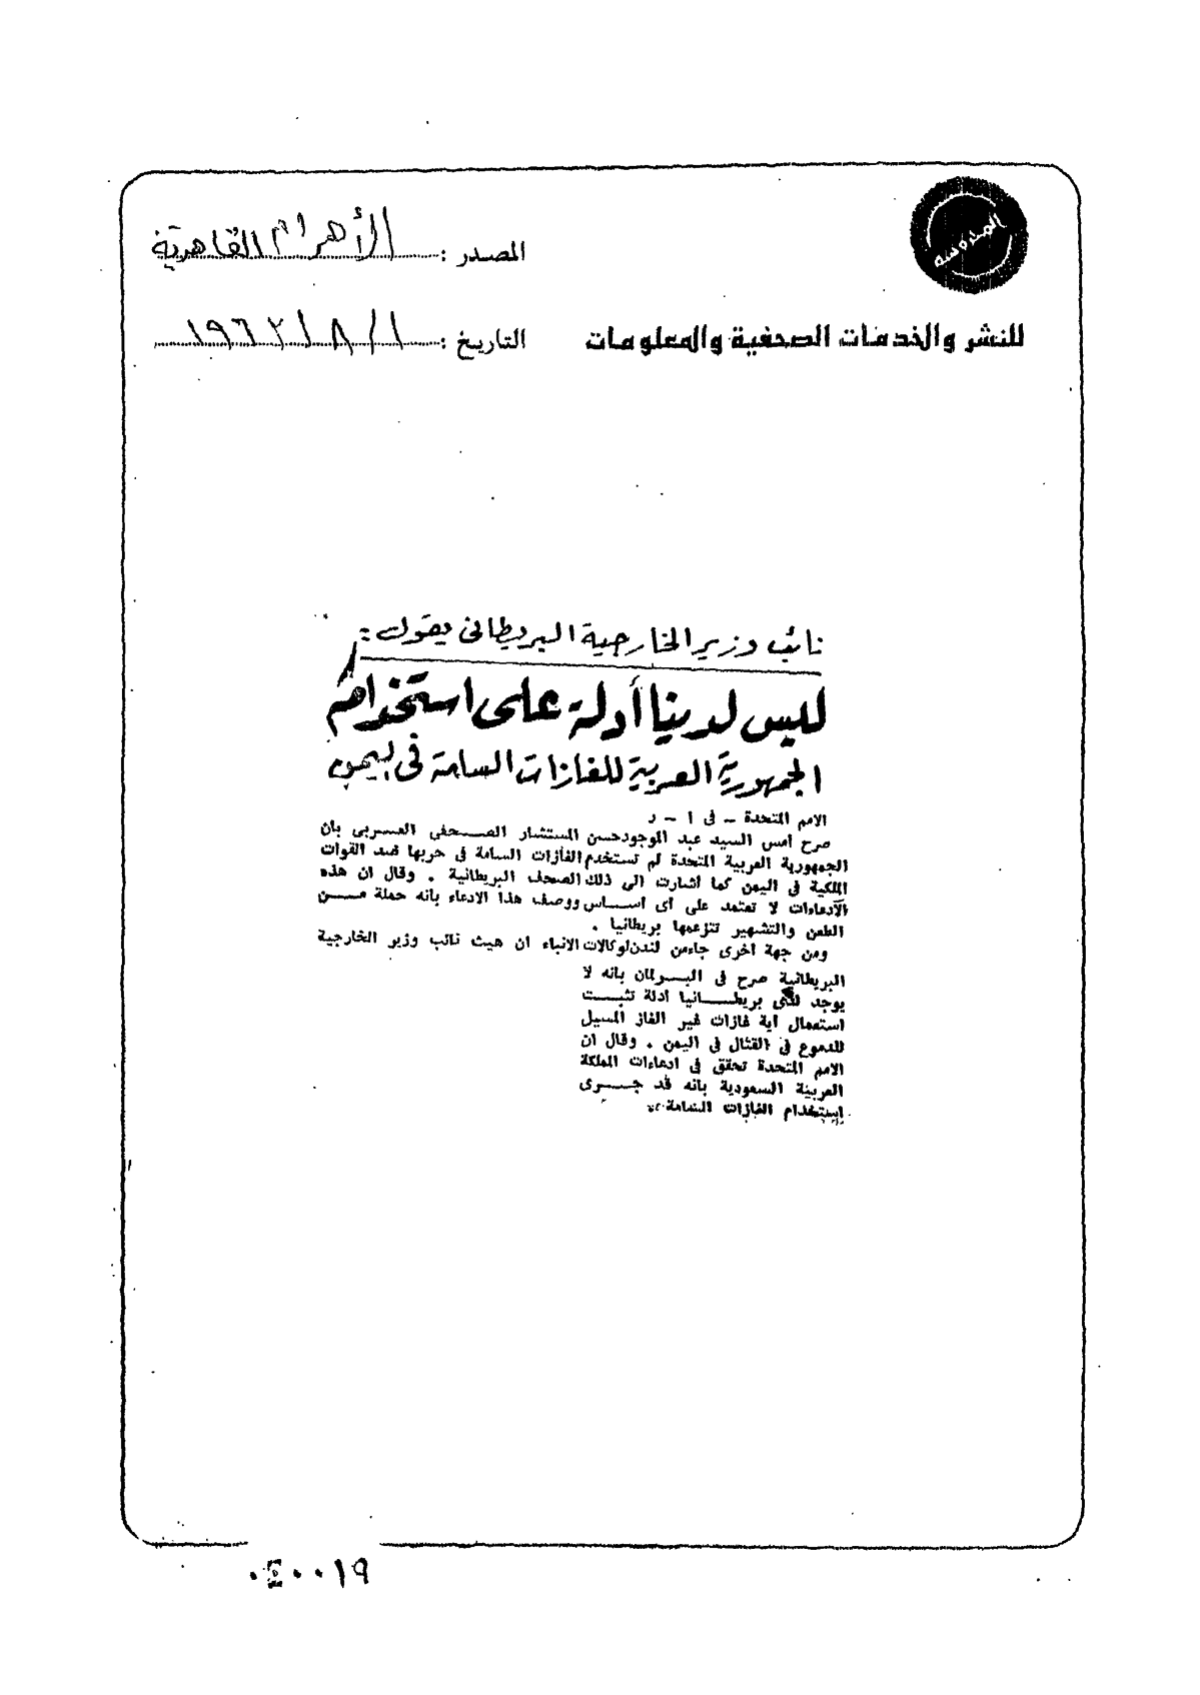 المدوسه
المصدر : الأهرام القاهرية
للنشر والخدمات الصحفية والمعلومات
التاريخ : ١ / ٨ / ١٩٦٢
نائب وزير الخارجية البريطانى يقول :
ليس لدينا أدلة على استخدام
الجمهورية العربية للغازات السامة فى اليمن
الامم المتحدة - فى ١ - ر
صرح امس السيد عبد الموجود حسن المستشار الصحفى العربى بان
الجمهورية العربية المتحدة لم تستخدم الغازات السامة فى حربها ضد القوات
الملكية فى اليمن كما اشارت الى ذلك الصحف البريطانية . وقال ان هذه
الادعاءات لا تعتمد على اى اساس ووصف هذا الادعاء بانه حملة من
الطعن والتشهير تتزعمها بريطانيا .
ومن جهة اخرى جاءمن لندن لوكالات الانباء ان هيث نائب وزير الخارجية
البريطانية صرح فى البرلمان بانه لا
يوجد لدى بريطانيا ادلة تثبت
استعمال اية غازات غير الغاز المسيل
للدموع فى القتال فى اليمن . وقال ان
الامم المتحدة تحقق فى ادعاءات المملكة
العربية السعودية بانه قد جرى
استخدام الغازات السامة .
٠٤٠٠١٩